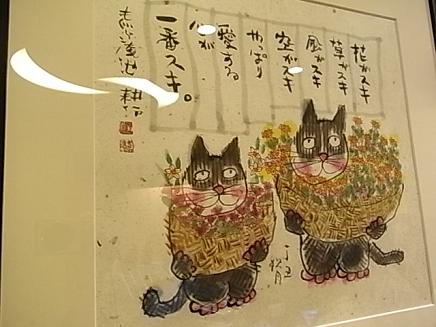 花がスキ
草がスキ
風がスキ
空がスキ
やっぱり
愛する
心が
一番スキ。
丁丑